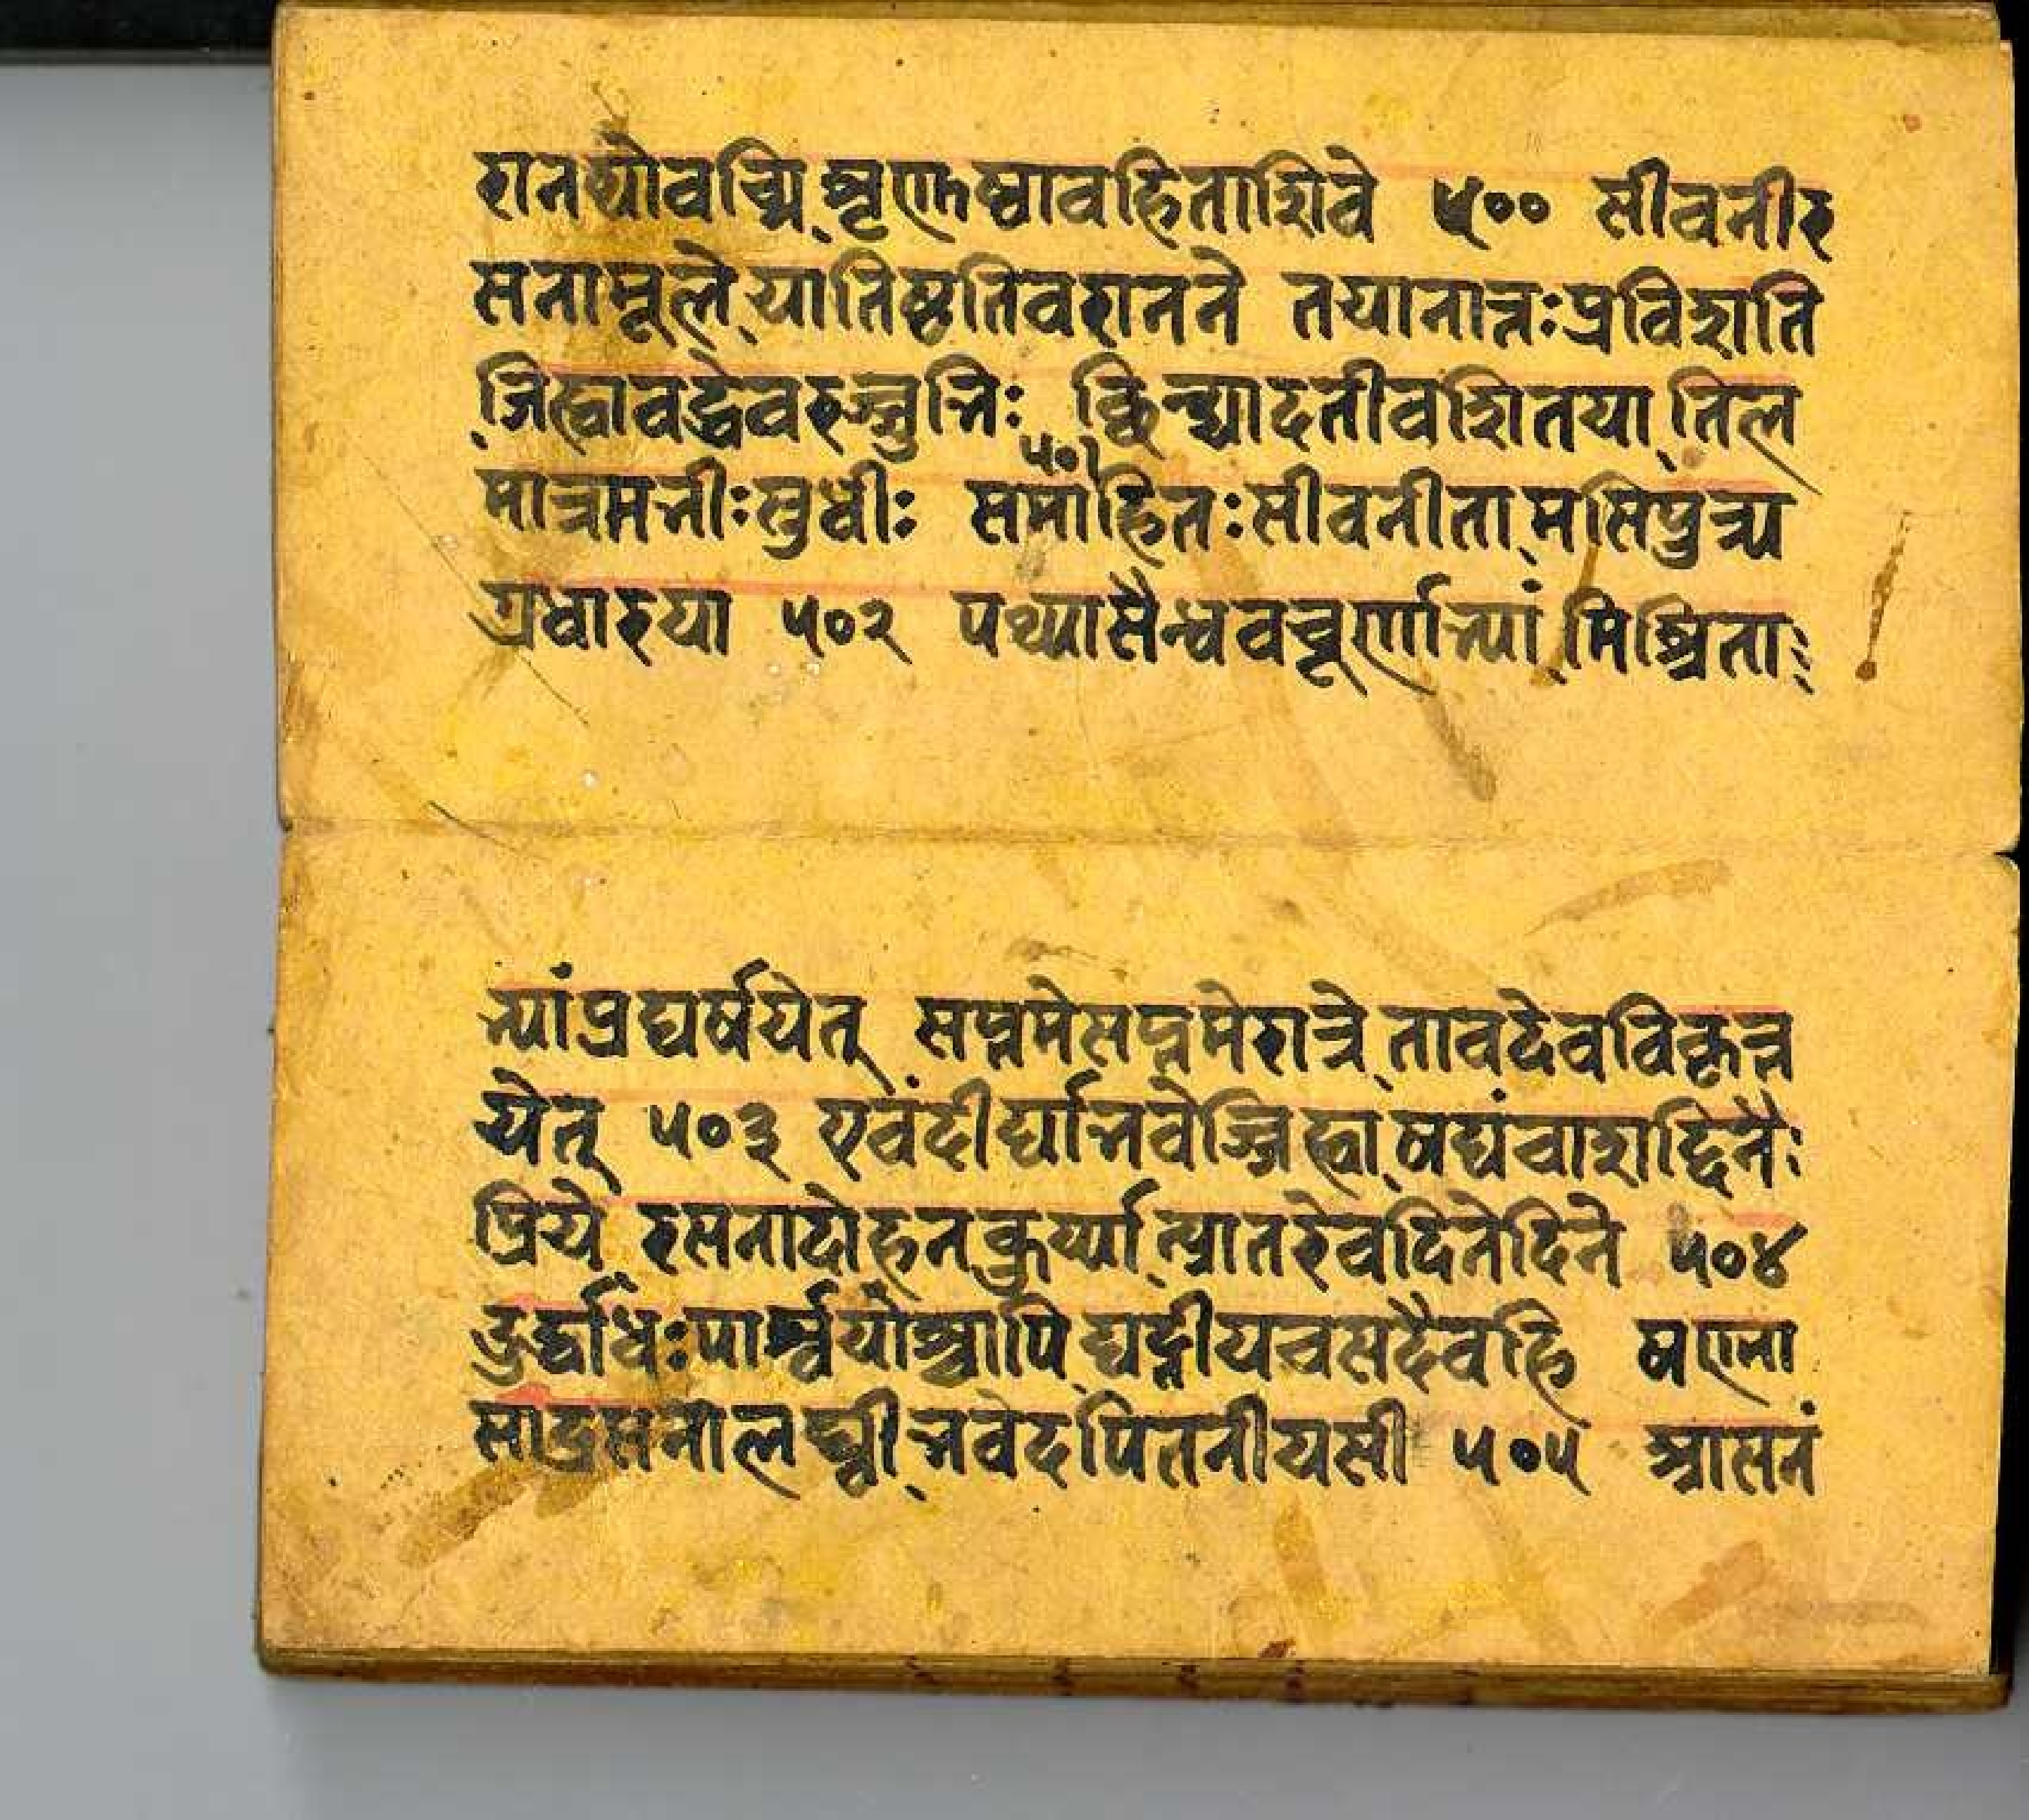 रानद्योवच्मि शृणुष्वावहिताशिवे ५०० सीवनीर
सनामूले यातिष्ठतिवरानने तयानान्तःप्रविशति
जिह्वावद्धेवरज्जुभिः छिन्द्यादतीवशितया तिल
५०१
मात्रमभीःसुधीः समाहितःसीवनीता मसिपुत्र्य
ग्रधारया ५०२ पथ्यासैन्धवचूर्णाभ्यां मिश्रिता
भ्यांप्रघर्षयेत् सप्तमेसप्तमेरात्रे तावदेवविकृन्त
येत् ५०३ एवंदीर्घाभवेज्जिह्वा षद्यंचाशद्दिनैः
प्रिये रसनादोहनकुर्य्या त्प्रातरेवदिनेदिने ५०४
उर्द्ध्वाधःपार्श्वयोश्चापि घट्टीयचसदैवहि षण्मा
साद्रसनालघ्वी भवेदपितनीयसी ५०५ आसनं